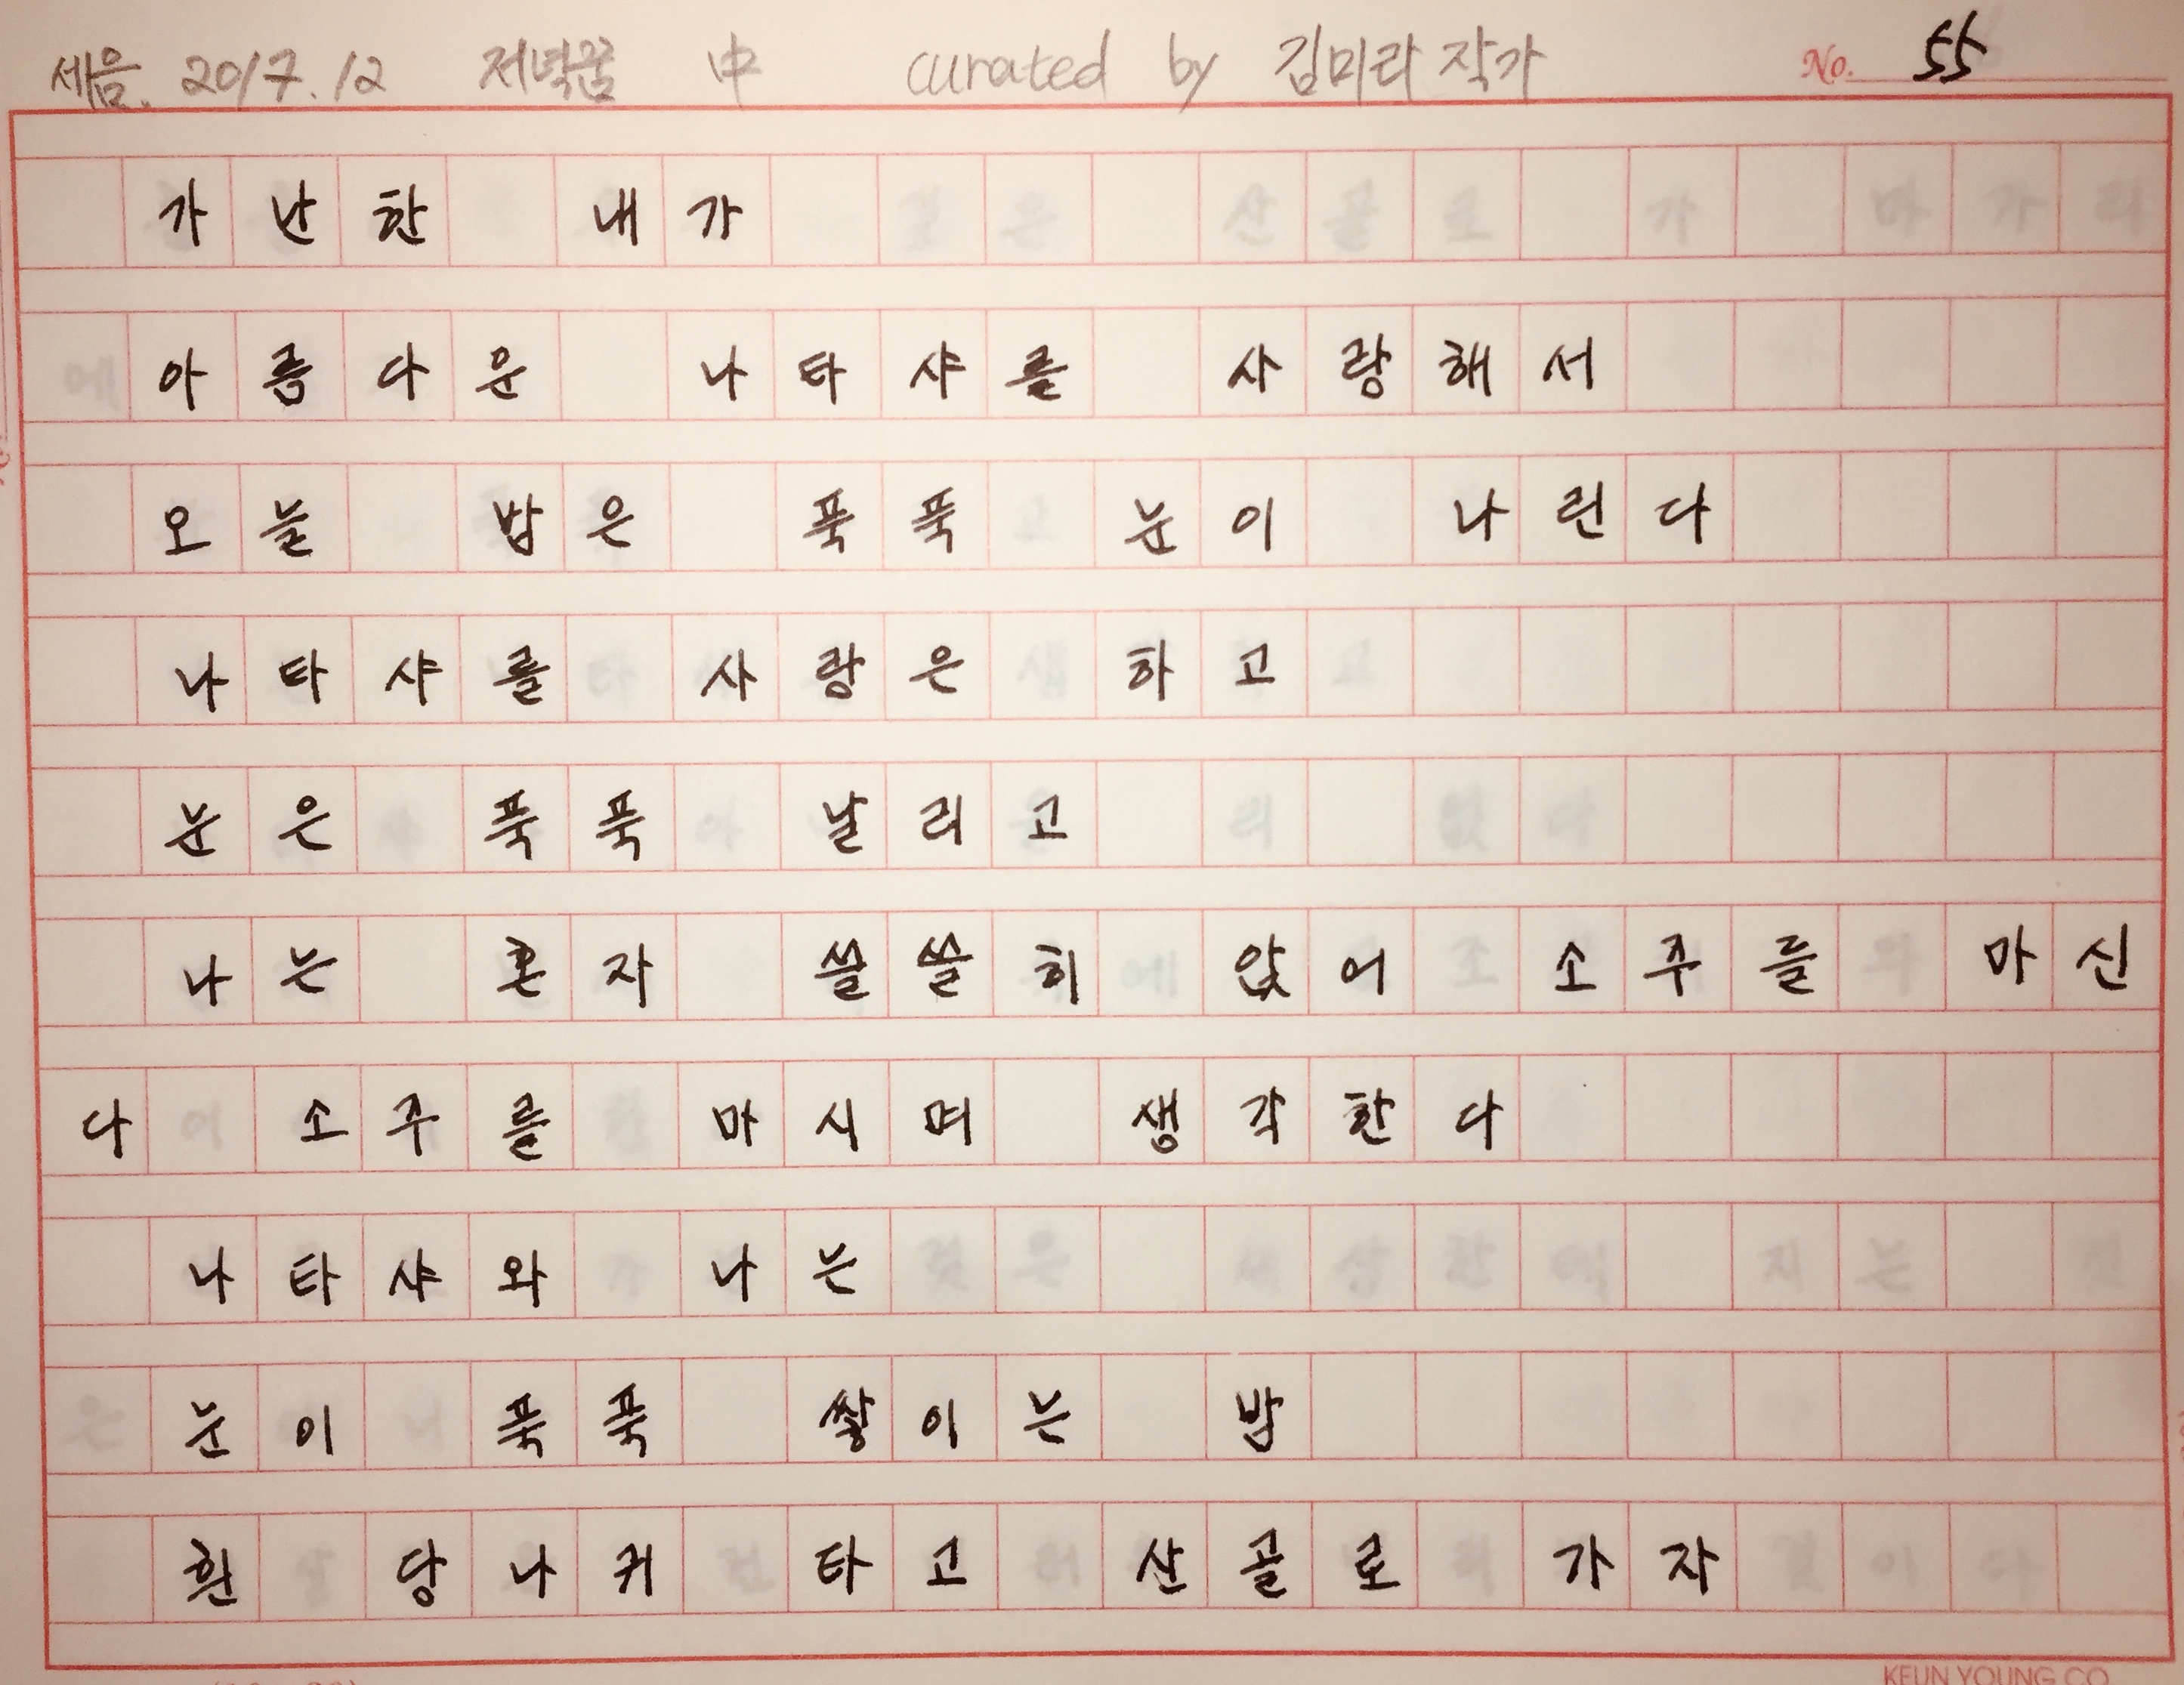 세음. 2017.12 저녁꿈 中 curated by 김미라 작가 No. 55
가난한 내가
아름다운 나타샤를 사랑해서
오늘 밤은 푹푹 눈이 나린다
나타샤를 사랑은 하고
눈은 푹푹 날리고
나는 혼자 쓸쓸히 앉어 소주를 마신
다 소주를 마시며 생각한다
나타샤와 나는
눈이 푹푹 쌓이는 밤
흰 당나귀 타고 산골로 가자
KEUN YOUNG CO